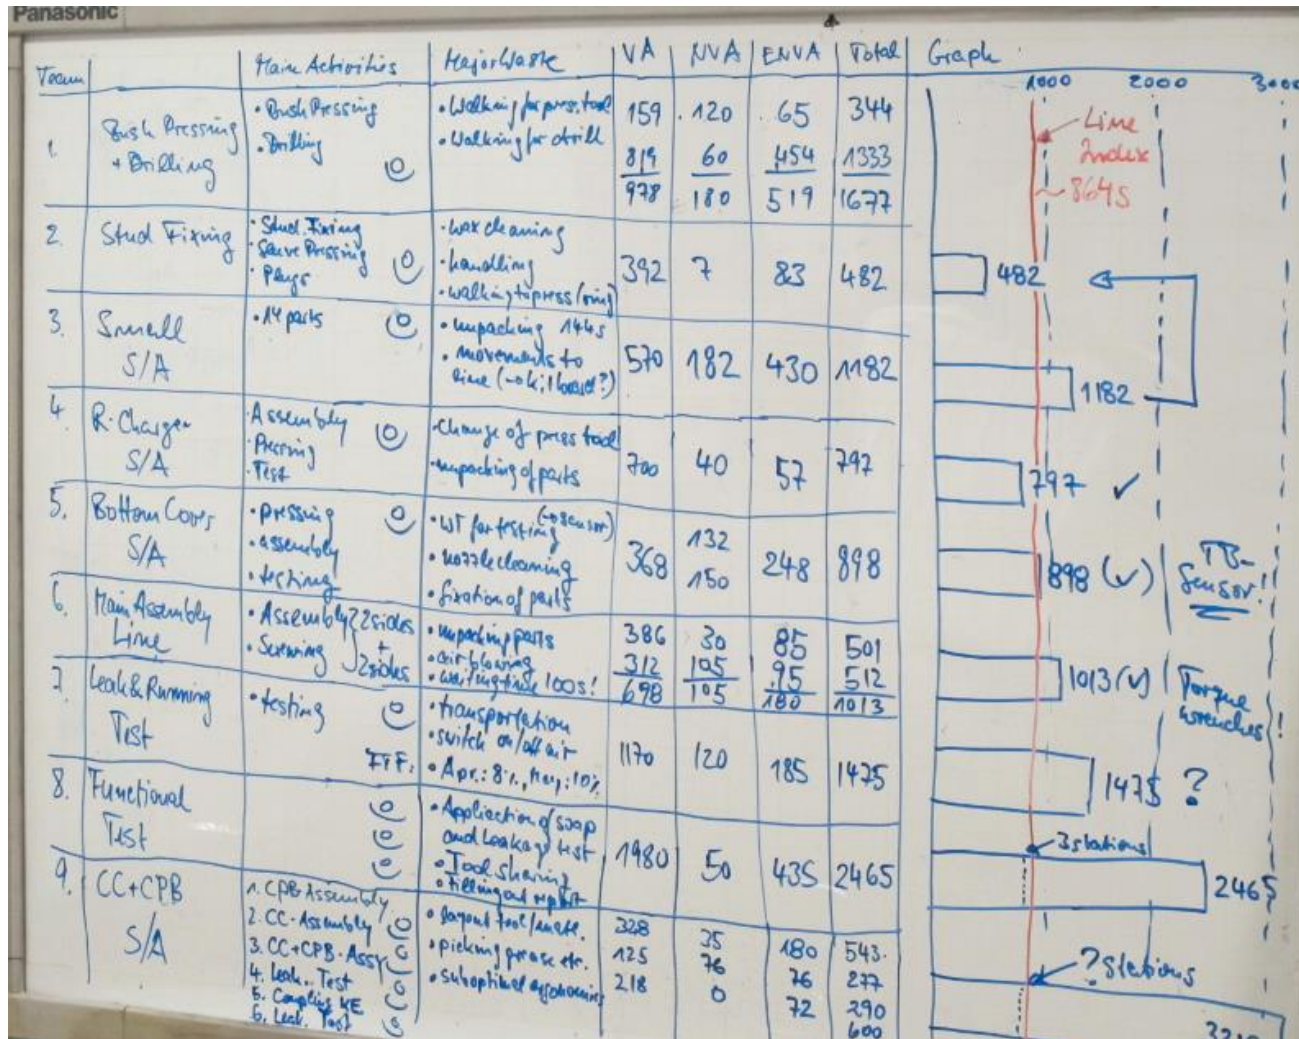 Panasonic
Team | Main Activities | Major Waste | VA | NVA | ENVA | Total | Graph
1000 2000 3000
1. Bush Pressing + Drilling
• Bush Pressing
• Drilling
• Walking for press. tool
• Walking for drill
159 120 65 344
819 60 454 1333
978 180 519 1677
Line
Index
~864S
2. Stud Fixing
• Stud. Fixing
Pressing
• Plugs
• wax cleaning
• handling
• walking to press (ring)
392 7 83 482
482
3. Small S/A
• 14 parts
• unpacking 144s
• movements to
line
570 182 430 1182
1182
4. R. Charger S/A
• Assembly
• Pressing
• Test
• change of press tool
• unpacking of parts
700 40 57 797
797 ✓
5. Bottom Cover S/A
• pressing
• assembly
• testing
• WT for testing (→ sensor)
• nozzle cleaning
• fixation of parts
368 132 150 248 898
898 (✓)
TB-
Sensor!!
6. Main Assembly Line
• Assembly } 2 sides
• Screwing } + 2 sides
• unpacking parts
• air blowing
• waiting time 100s!
386 30 85 501
312 105 95 512
698 105 180 1013
1013 (✓)
Torque
wrenches!
7. Leak & Running Test
• testing
FTF:
• transportation
• switch on/off air
• Apr.: 8%, May: 10%
1170 120 185 1475
1475 ?
8. Functional Test
• Application of soap
and leakage test
• Tool sharing
• Filling out report
1980 50 435 2465
3 stations
2465
9. CC+CPB S/A
1. CPB Assembly
2. CC-Assembly
3. CC+CPB-Assy
4. Leak. Test
5. Coupling KE
6. Leak. Test
• layout tool/mate.
• picking grease etc.
• suboptimal ergonomics
328 35 180 543
125 76 76 277
218 0 72 290
600
? Stations